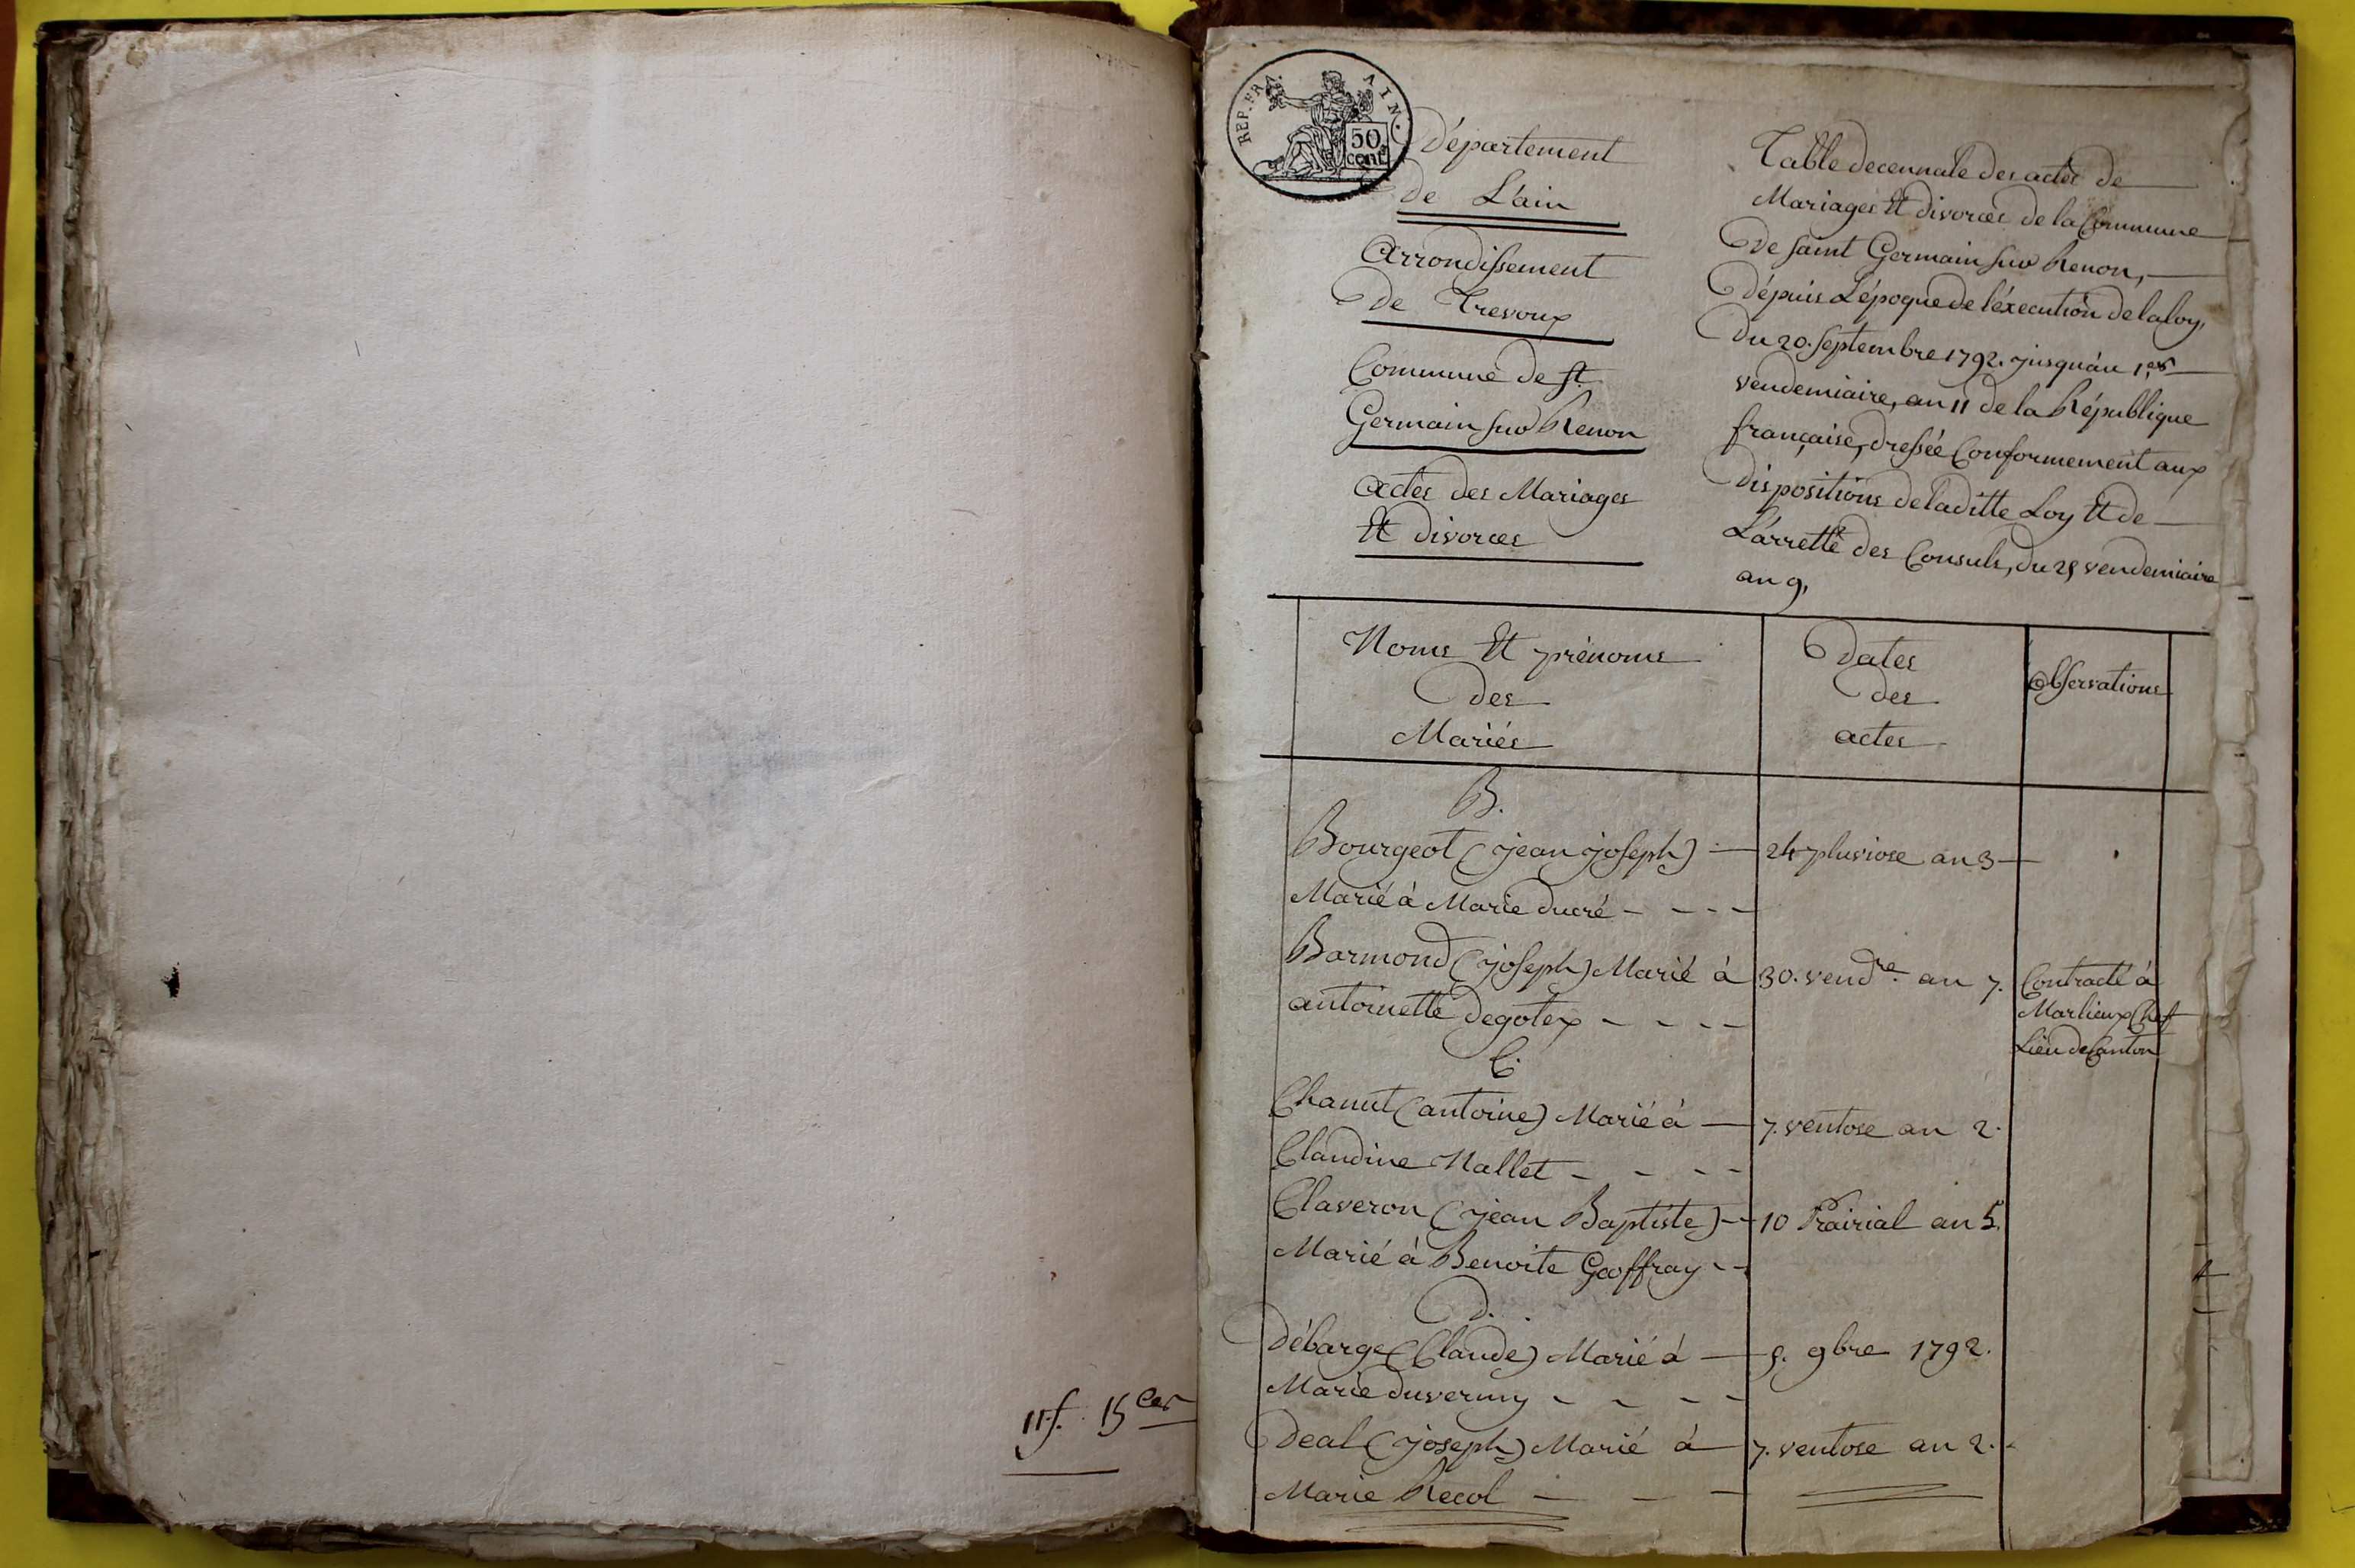 11 f. 15 Ces
REP. FRA. AIN.
50
cent.
Département
de L'ain
Arrondissement
de Trevoux
Commune de St.
Germain sur Renon
Actes des Mariages
Et divorces
Table decennale des actes de
Mariages Et divorces de la Commune
de saint Germain sur Renon,
dépuis L'époque de l'éxecution de la loy,
du 20. septembre 1792. jusqu'àu 1.er
vendemiaire, an 11 de la République
française, dressée Conformement aux
dispositions de laditte Loy Et de
L'arretté des Consuls, du 25 vendemiaire
an 9,
Noms Et prénoms
des
Mariés
Dates
des
actes
Observations
B.
Bourgeot (jean joseph) 24 pluviose an 3
Marié à Marie ducré
Barmond (joseph) Marié à 30. vend.re an 7. Contracté à
antoinette degotex Marlieux Chef
Lieu de Canton
C.
Chanut (antoine) Marié à 7. ventose an 2.
Claudine Nallet
Claveron (jean Baptiste) 10 Prairial an 5.
Marié à Benoite Geoffray
D.
Débarge (Claude) Marié à 5. 9bre 1792.
Marie duverny
Deal (joseph) Marié à 7. ventose an 2.
Marie Recol